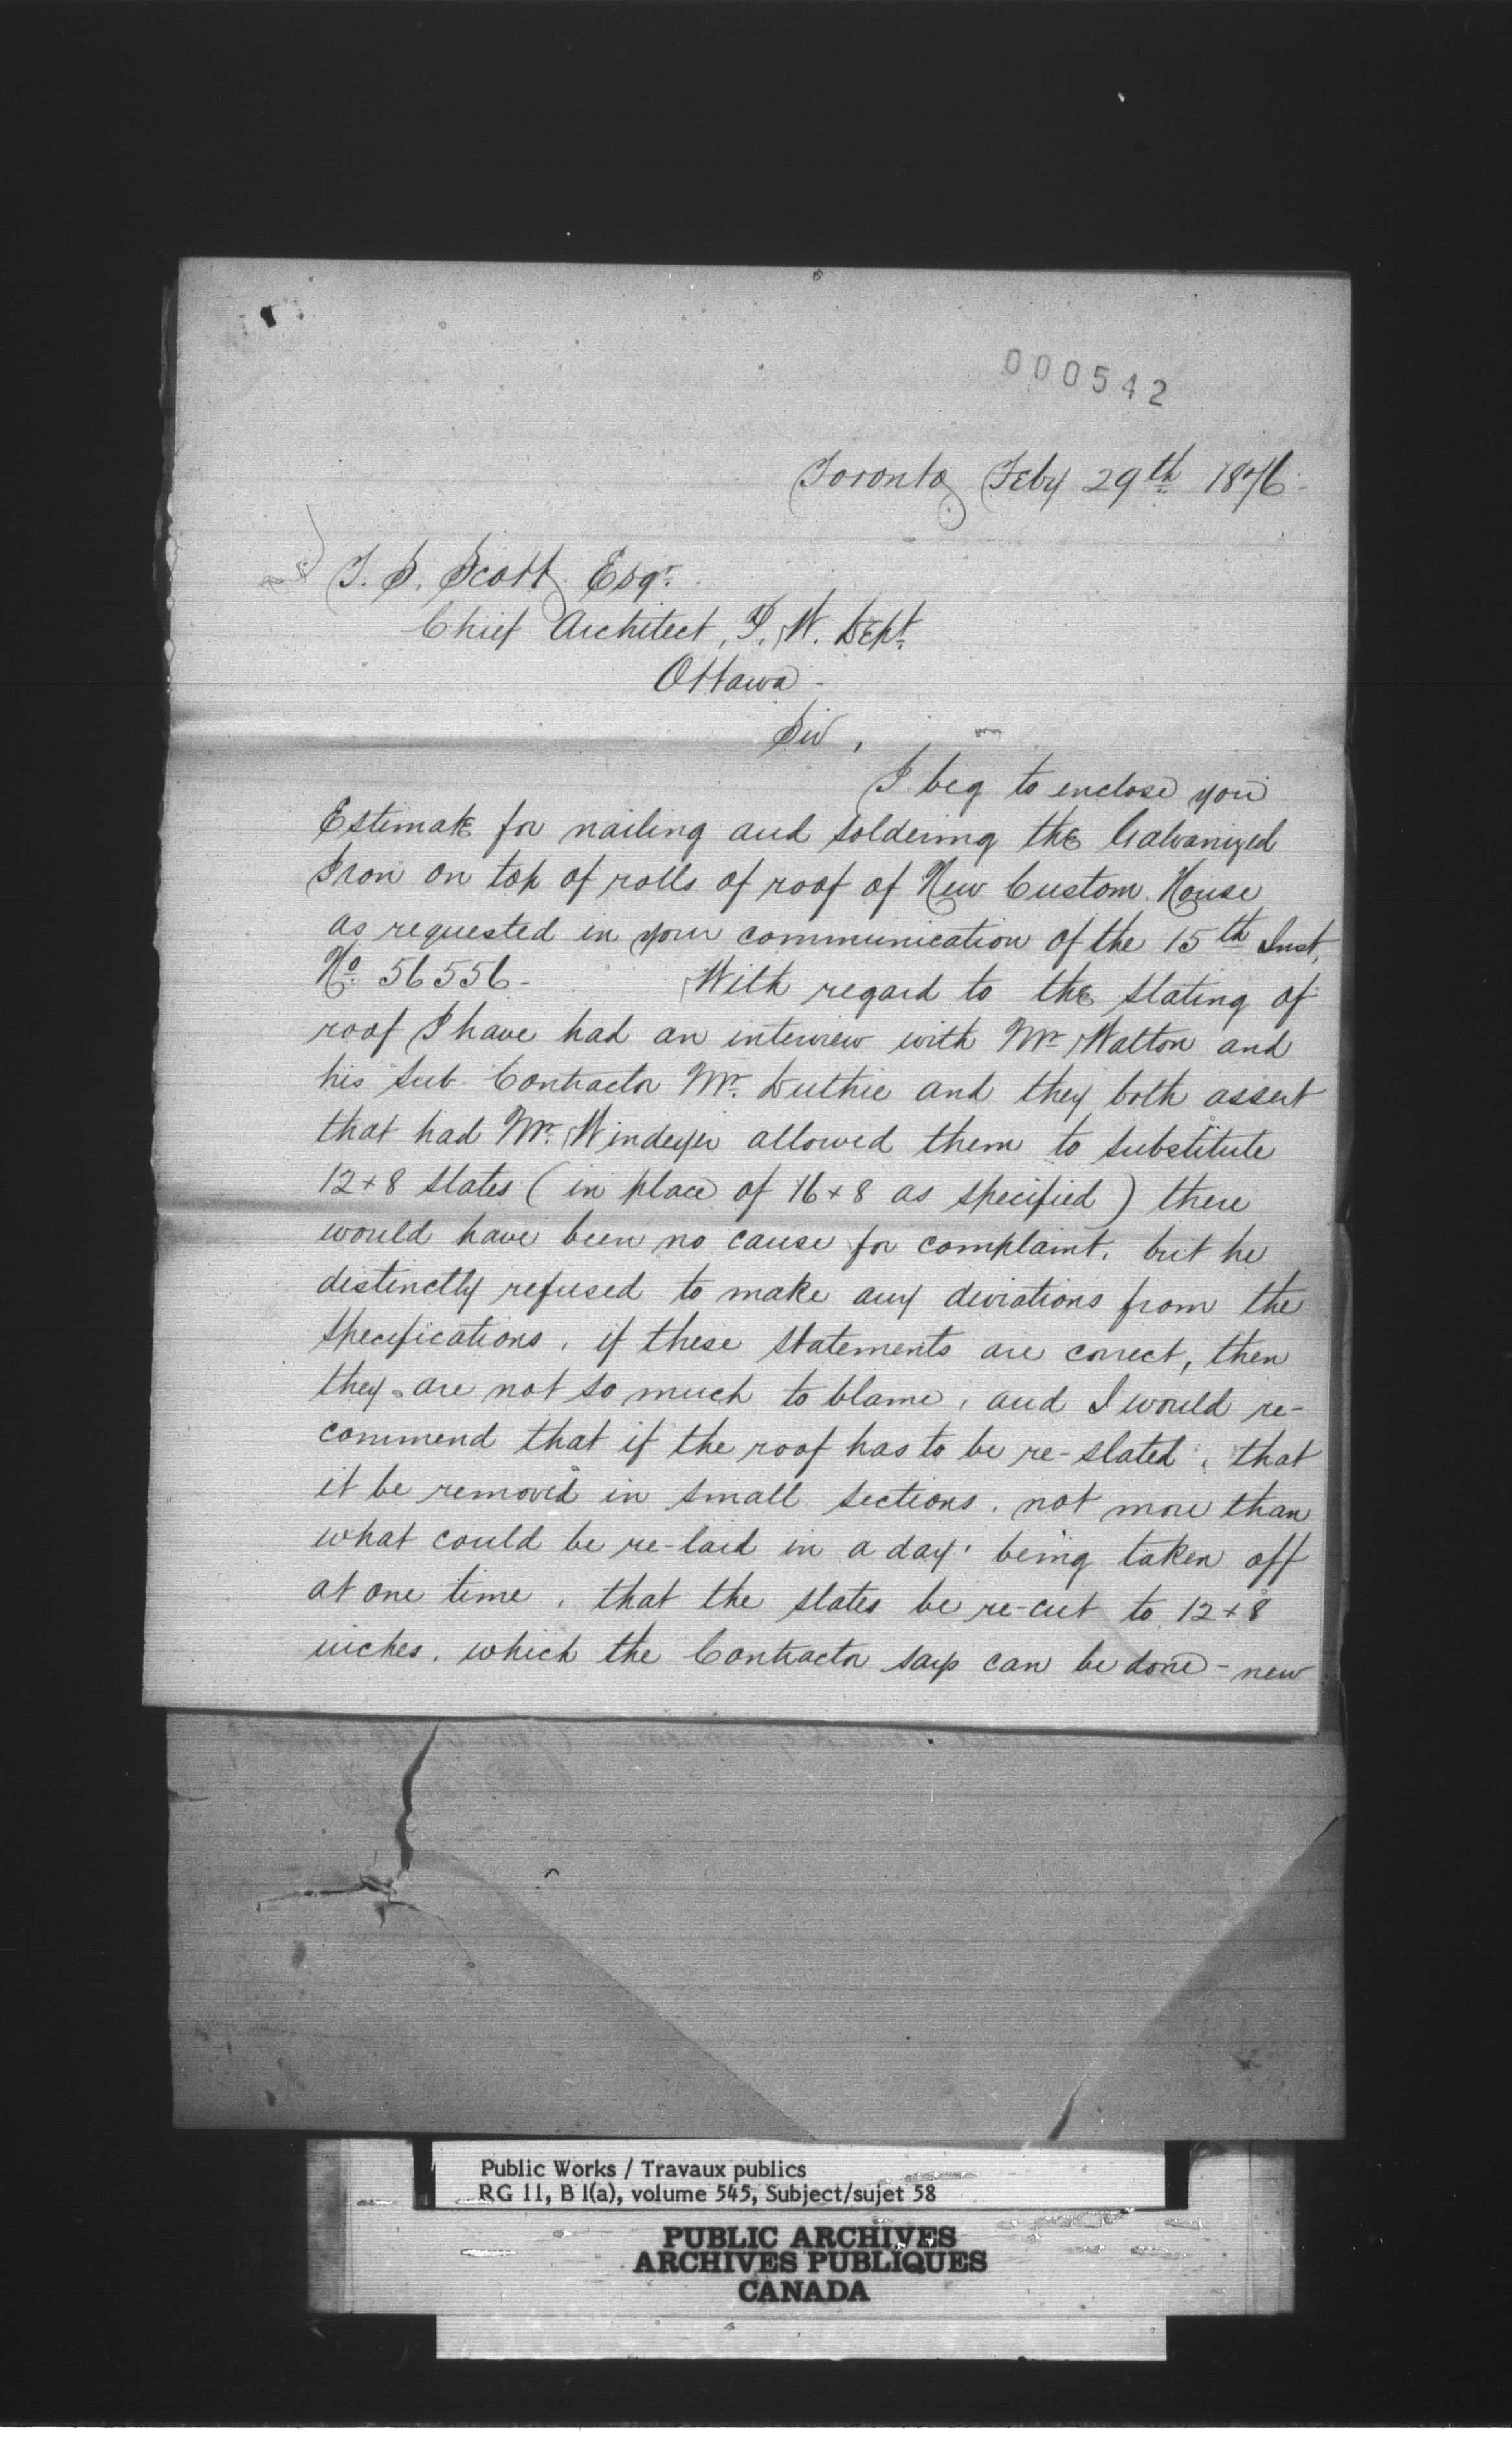 000542
Toronto Feby 29th 1876-
T. S. Scott Esqr.
Chief Architect, P. W. Dept.
Ottawa -
Sir,
I beg to enclose you
Estimate for nailing and soldering the Galvanized
Iron on top of rolls of roof of New Custom House
as requested in your communication of the 15th Inst,
No. 56556- With regard to the slating of
roof I have had an interview with Mr. Walton and
his Sub-Contractor Mr. Duthie and they both assert
that had Mr. Windeyer allowed them to substitute
12+8 slates (in place of 16+8 as specified) there
would have been no cause for complaint, but he
distinctly refused to make any deviations from the
specifications, if these statements are correct, then
they are not so much to blame, and I would re-
commend that if the roof has to be re-slated, that
it be removed in small sections, not more than
what could be re-laid in a day, being taken off
at one time, that the slates be re-cut to 12+8
inches, which the Contractor says can be done - new
Public Works / Travaux publics
RG 11, B 1(a), volume 545, Subject/sujet 58
PUBLIC ARCHIVES
ARCHIVES PUBLIQUES
CANADA